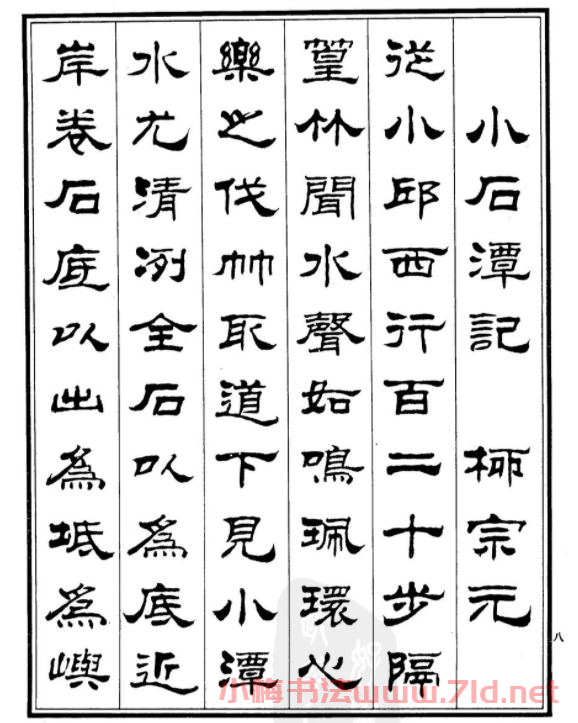 小石潭記 柳宗元
從小邱西行百二十步隔
篁竹聞水聲如鳴珮環心
樂之伐竹取道下見小潭
水尤清冽全石以為底近
岸卷石底以出為坻為嶼
八
小梅书法www.7ld.net